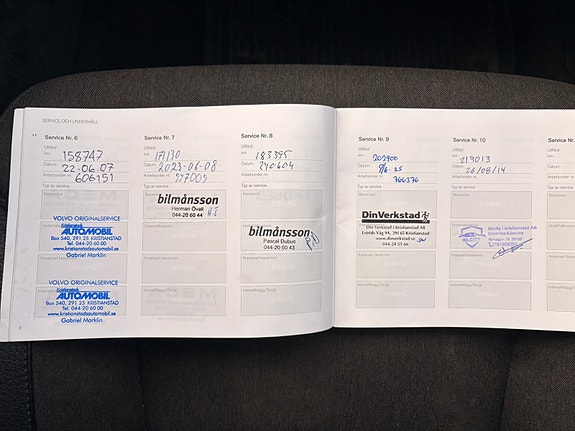 SERVICE OCH UNDERHÅLL
Service Nr. 6
Utförd
km
158747
Datum
22-06-07
Arbetsorder nr.
606151
Typ av service
VOLVO ORIGINALSERVICE
Kristianstads
AUTOMOBIL
Box 540, 291 25 KRISTIANSTAD
Tel. 044-20 60 00
www.kristianstadsautomobil.se
Gabriel Marklin
VOLVO ORIGINALSERVICE
Kristianstads
AUTOMOBIL
Box 540, 291 25 KRISTIANSTAD
Tel. 044-20 60 00
www.kristianstadsautomobil.se
Gabriel Marklin
Service Nr. 7
Utförd
km
171130
Datum
2023-06-08
Arbetsorder nr.
Typ av service
bilmånsson
Herman Övall
044-20 60 44
Service Nr. 8
Utförd
km
183395
Datum
240604
Arbetsorder nr.
Typ av service
bilmånsson
Pascal Dubuc
044-20 60 43
Service Nr. 9
Utförd
km
202900
Datum
Arbetsorder nr.
766376
Typ av service
DinVerkstad
Din Verkstad i Kristianstad AB
Estrids Väg 94, 291 65 Kristianstad
www.dinverkstad.se
044-24 55 66
Service Nr. 10
Utförd
km
219013
Datum
26/05/14
Arbetsorder nr.
Typ av service
BILCITY
Bilcity i Kristianstad AB
Service Nr.